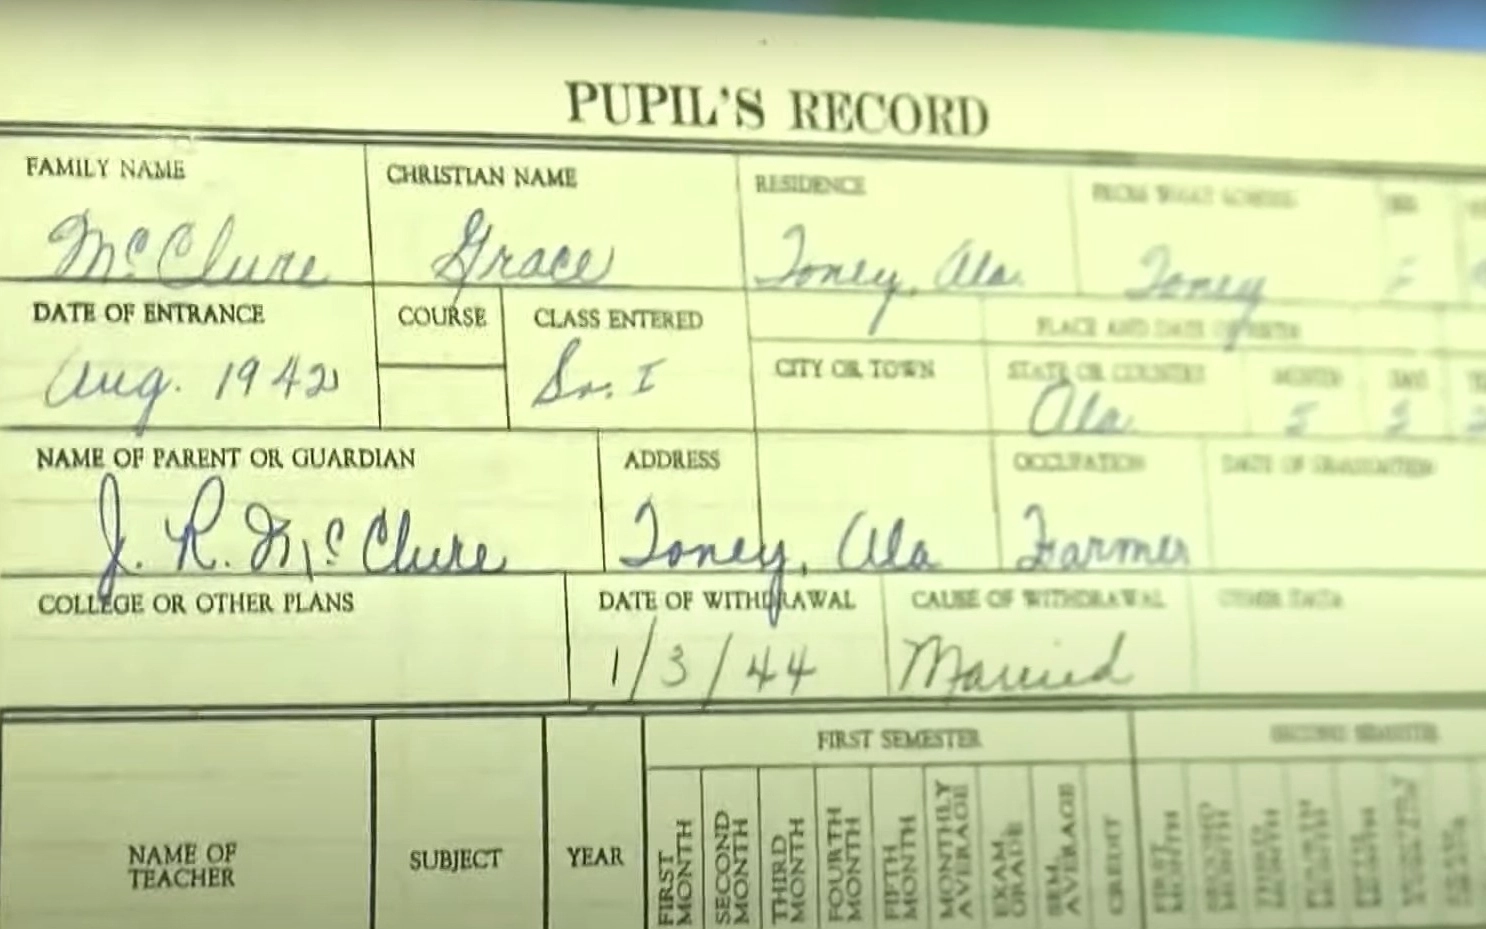 PUPIL'S RECORD
FAMILY NAME CHRISTIAN NAME RESIDENCE FROM WHAT SCHOOL SEX
McClure Grace Toney, Ala. Toney F
DATE OF ENTRANCE COURSE CLASS ENTERED PLACE AND DATE OF BIRTH
Aug. 1942 Sr. I
CITY OR TOWN STATE OR COUNTRY MONTH DAY
Ala. 5 3
NAME OF PARENT OR GUARDIAN ADDRESS OCCUPATION DATE OF GRADUATION
J. R. McClure Toney, Ala Farmer
COLLEGE OR OTHER PLANS DATE OF WITHDRAWAL CAUSE OF WITHDRAWAL OTHER DATA
1/3/44 Married
FIRST SEMESTER SECOND SEMESTER
NAME OF TEACHER SUBJECT YEAR FIRST MONTH SECOND MONTH THIRD MONTH FOURTH MONTH FIFTH MONTH MONTHLY AVERAGE EXAM. GRADE SEM. AVERAGE CREDIT FIRST MONTH SECOND MONTH THIRD MONTH FOURTH MONTH FIFTH MONTH MONTHLY AVERAGE